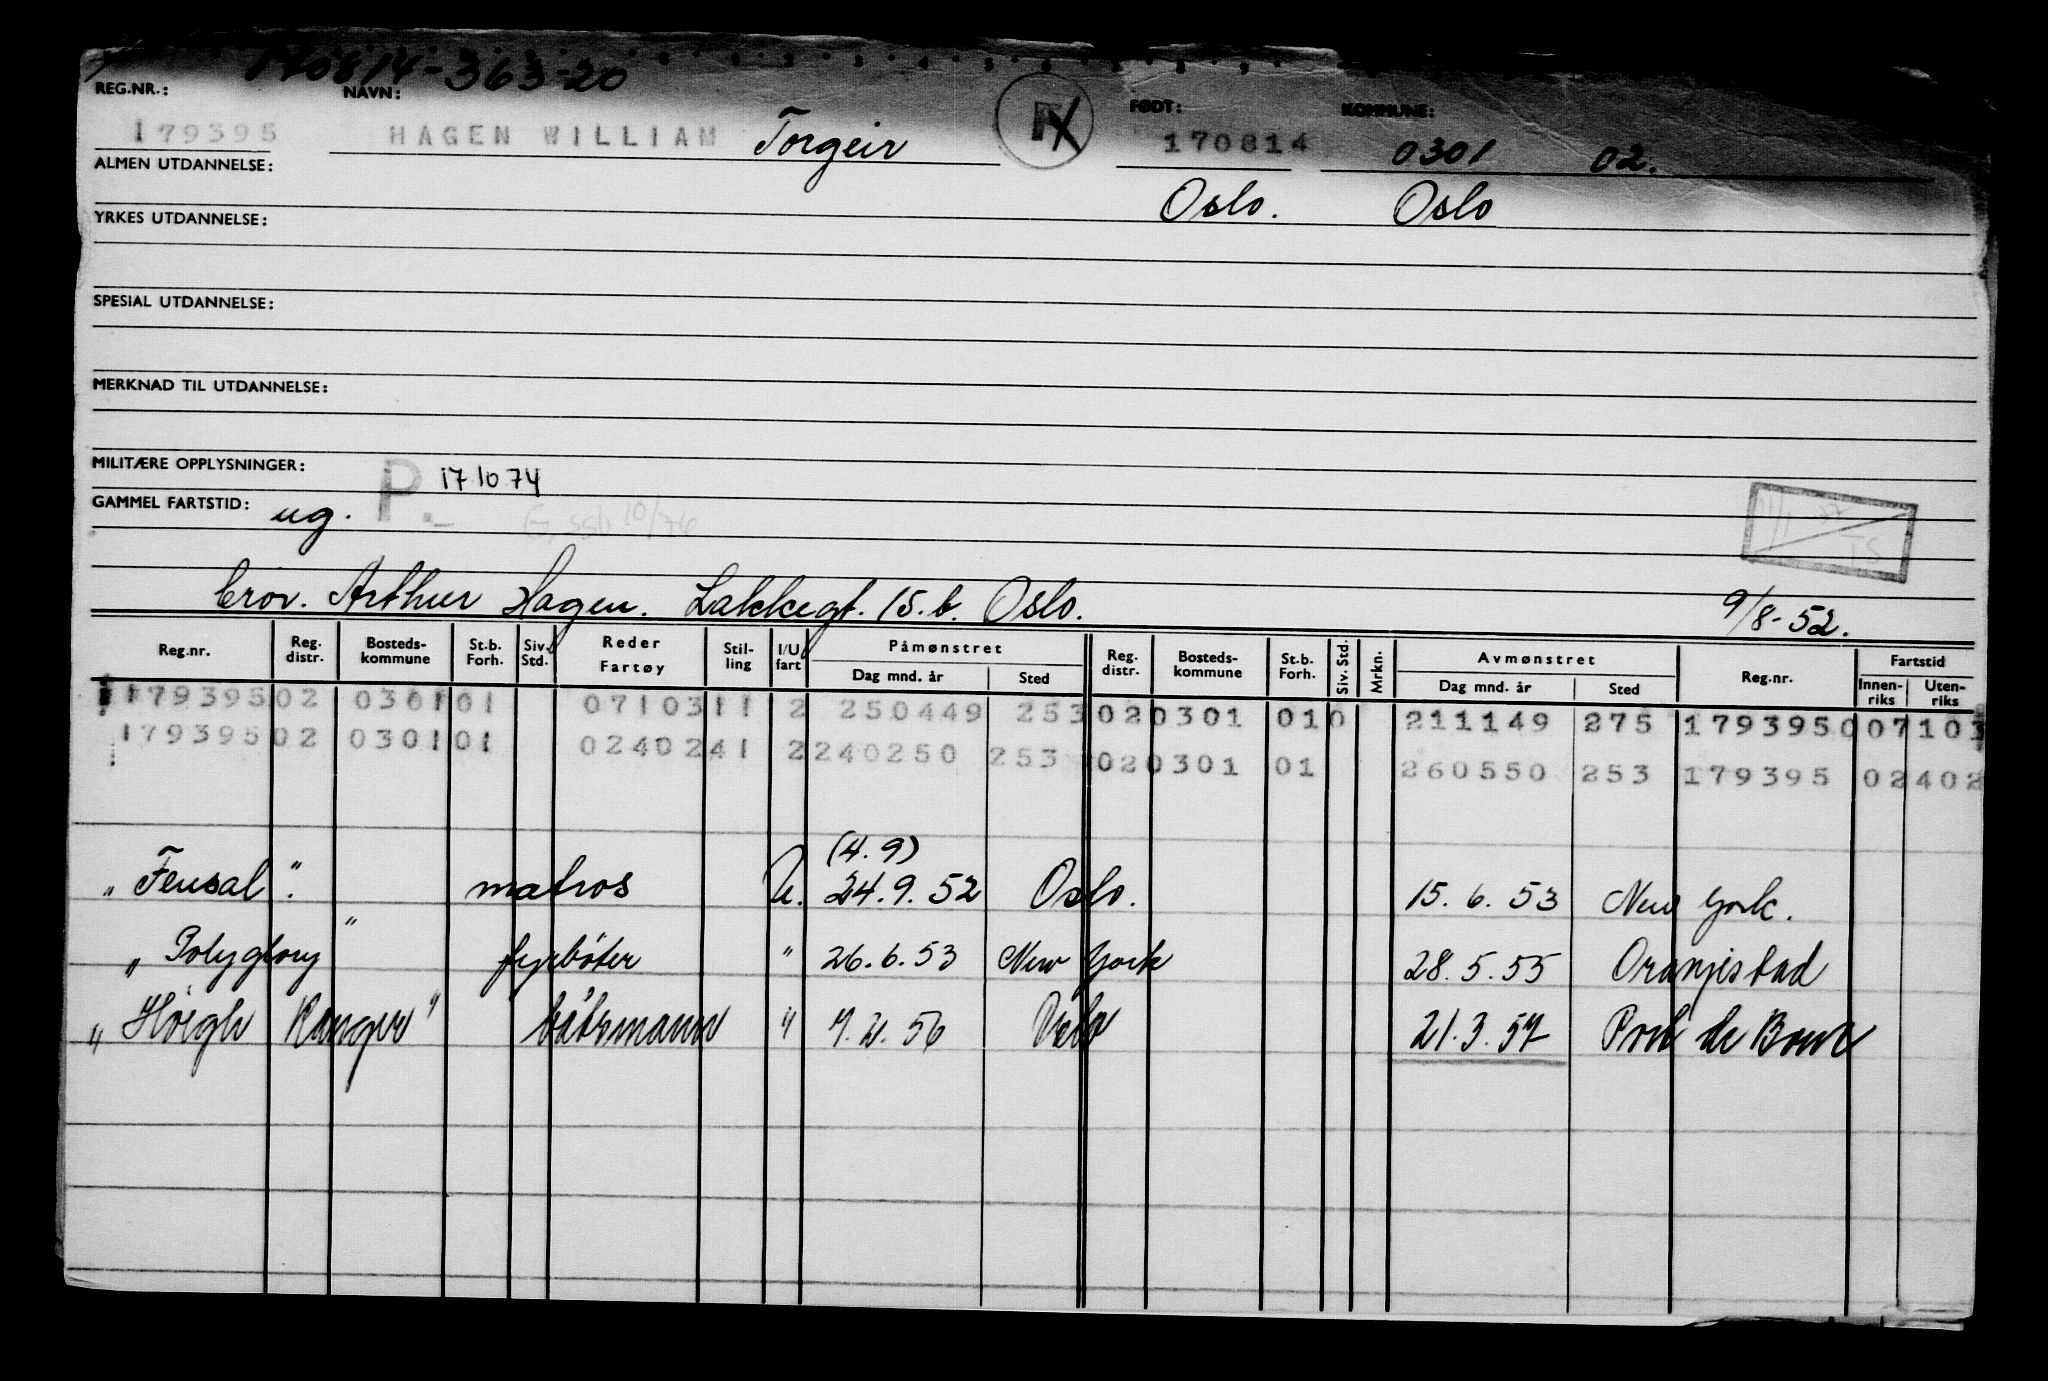 170814-363-20
REG.NR.: NAVN: FØDT: KOMMUNE:
179395 HAGEN WILLIAM Torgeir 170814 0301 02.
ALMEN UTDANNELSE: Oslo. Oslo
YRKES UTDANNELSE:
SPESIAL UTDANNELSE:
MERKNAD TIL UTDANNELSE:
MILITÆRE OPPLYSNINGER: P. 17 10 74
GAMMEL FARTSTID: ug.
bror. Arthur Hagen. Lakkegt. 15.b. Oslo. 9/8-52.
Reg.nr. Reg. distr. Bosteds-kommune St.b. Forh. Siv. Std. Reder Fartøy Stil-ling I/U fart Påmønstret Dag mnd. år Sted Reg. distr. Bosteds-kommune St.b. Forh. Siv. Std. Mrkn. Avmønstret Dag mnd. år Sted Reg.nr. Fartstid Innen-riks Uten-riks
179395 02 0301 01 0710311 2 250449 253 02 0301 01 0 211149 275 179395 0 07103
179395 02 0301 01 0240241 2 240250 253 02 0301 01 260550 253 179395 02402
(4.9)
"Fensal". matros U. 24.9.52 Oslo. 15.6.53 New York.
"Polyglory" fyrbøter " 26.6.53 New York 28.5.55 Oranjestad
"Høegh Ranger" båtsmann " 7.2.56 Oslo 21.3.57 Port de Bouc